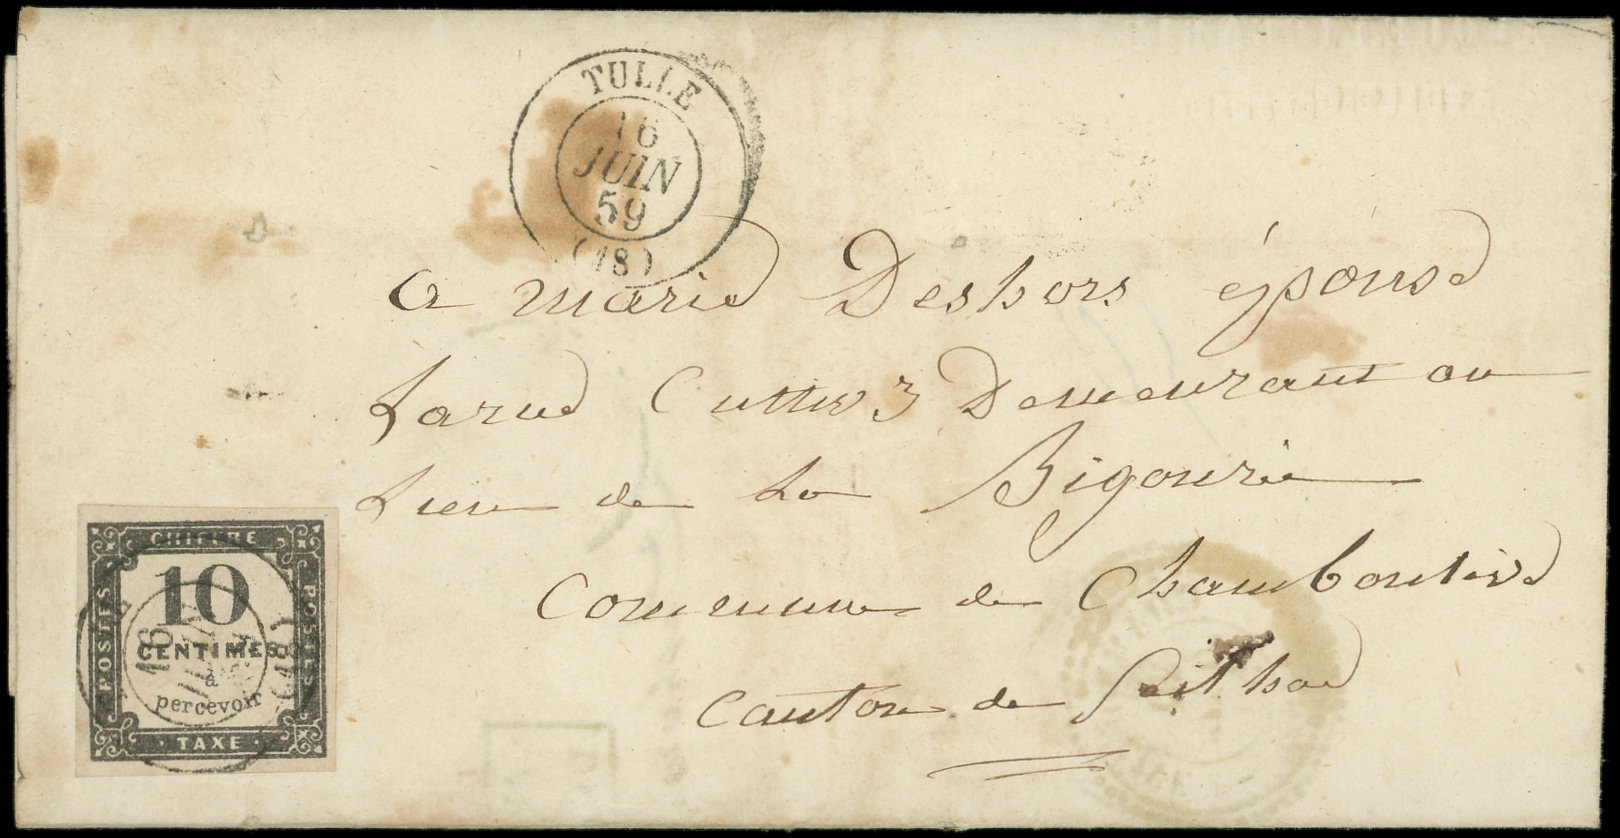 TULLE
16
JUIN
59
(18)
a marie Deshors épouse
Larue Cultiv3 Demeurant au
Lieu de la Bigourie
Commune de Chamboulive
Canton de Seilhac
CHIFFRE
POSTES
POSTES
10
CENTIMES
à
percevoir
TAXE
16
(18)